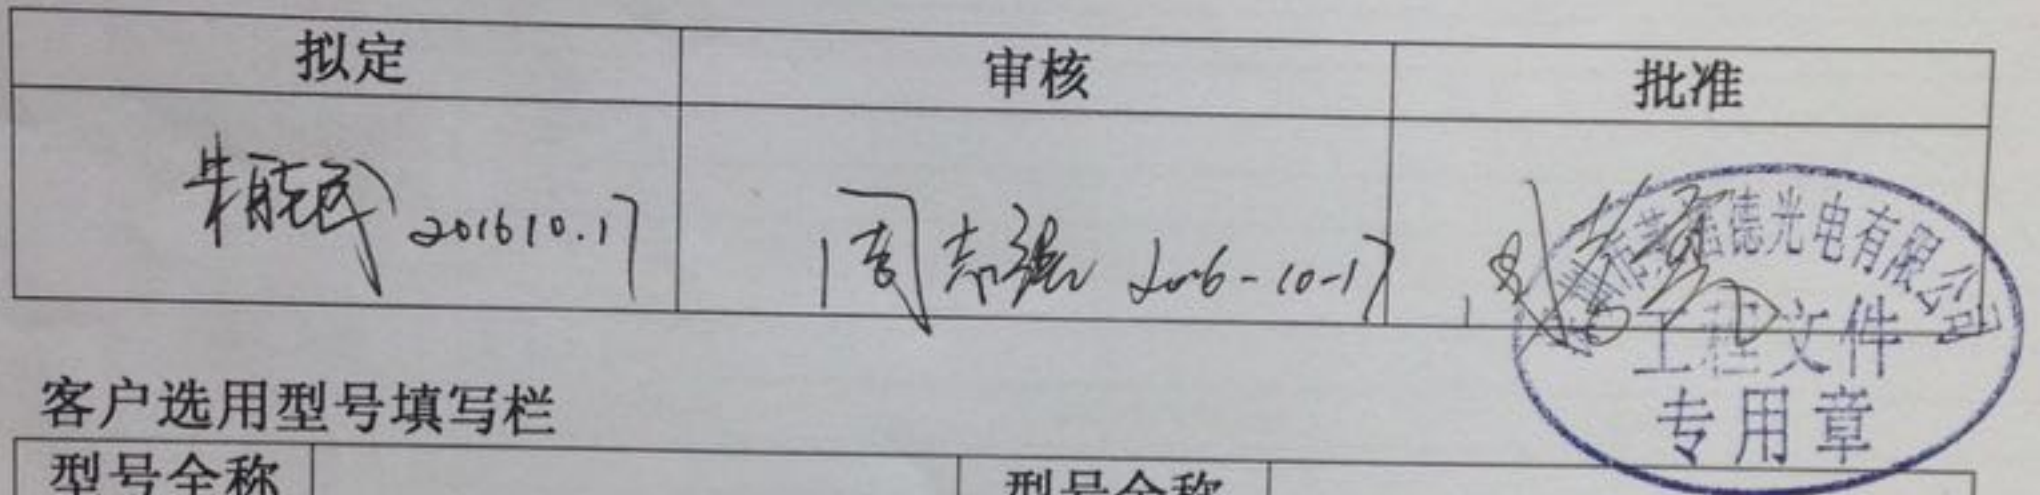 拟定 审核 批准
朱晓民 2016 10.17 周志强 2006-10-17
德光电有限公司
工程文件
专用章
客户选用型号填写栏
型号全称 型号全称